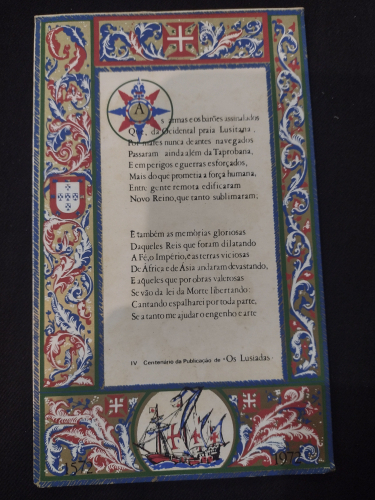 As armas e os barões assinalados
Que, da Ocidental praia Lusitana,
Por mares nunca de antes navegados
Passaram ainda além da Taprobana,
E em perigos e guerras esforçados,
Mais do que prometia a força humana,
Entre gente remota edificaram
Novo Reino, que tanto sublimaram;
E também as memórias gloriosas
Daqueles Reis que foram dilatando
A Fé, o Império, e as terras viciosas
De África e de Ásia andaram devastando,
E aqueles que por obras valerosas
Se vão da lei da Morte libertando:
Cantando espalharei por toda parte,
Se a tanto me ajudar o engenho e arte
IV Centenário da Publicação de "Os Lusíadas
1572 1972